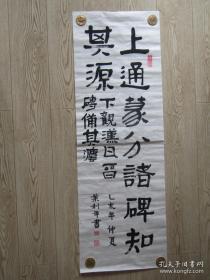 上通篆分諸碑知
其源下觀漢晉
碑備其
乙亥年仲夏
葉利年書
孔夫子旧书网